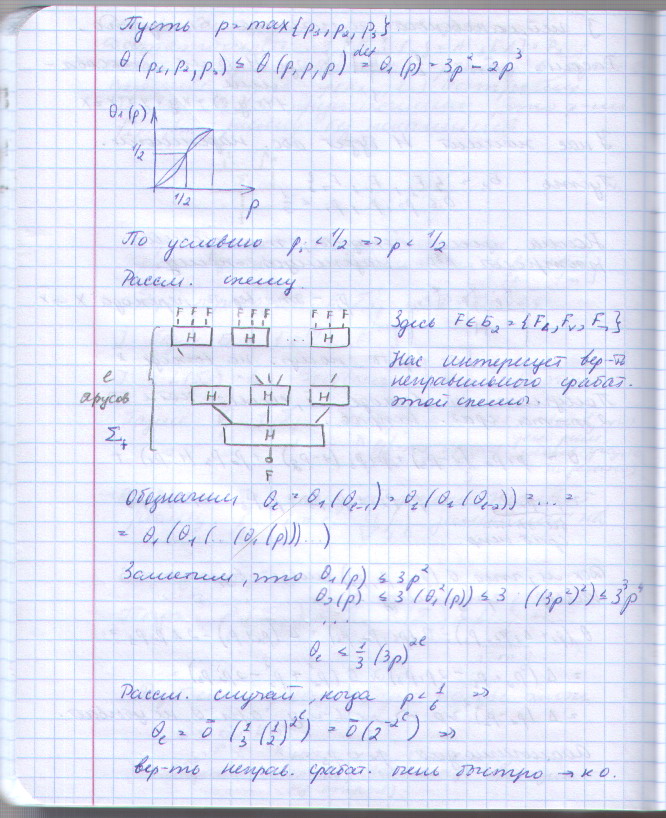 Пусть p = max{p₁, p₂, p₃}
θ(p₁, p₂, p₃) ≤ θ(p, p, p) def= θ₁(p) = 3p² - 2p³
θ₁(p)
1/2
1/2
p
По условию pᵢ < 1/2 => p < 1/2
Рассм. схему
F F F F F F F F F
H H ... H
Здесь F ∈ Б₂ = {F&, Fᵥ, F¬}
Нас интересует вер-ть
неправильного срабат.
этой схемы.
l
ярусов
H H H
H
F
Обозначим θₗ = θ₁(θₗ₋₁) = θ₁(θ₁(θₗ₋₂)) = ... =
= θ₁(θ₁(...(θ₁(p))...)
Заметим, что θ₁(p) ≤ 3p²
θ₂(p) ≤ 3(θ₁²(p)) ≤ 3 · ((3p²)²) ≤ 3³p⁴
...
θₗ ≤ 1/3 (3p)^2^l
Рассм. случай, когда p < 1/6 =>
θₗ = ō(1/3 (1/2)^2^l) = ō(2^-2^l) =>
вер-ть неправ. срабат. очень быстро → к 0.